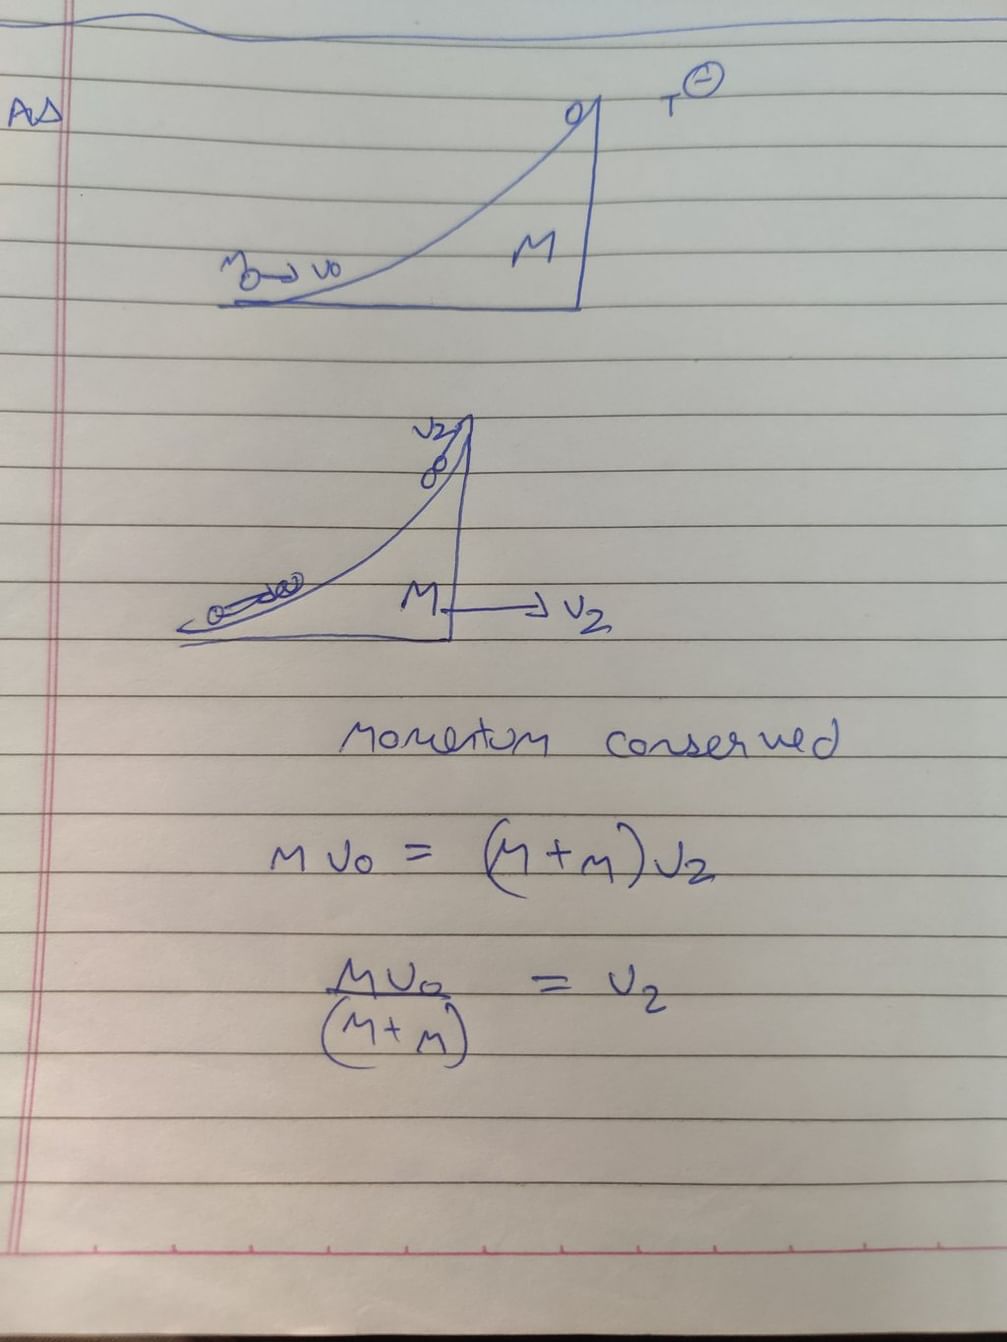 T⊖
M
m → v0
v2
M → v2
Momentum conserved
m v0 = (M + m) v2
m v0 / (M + m) = v2